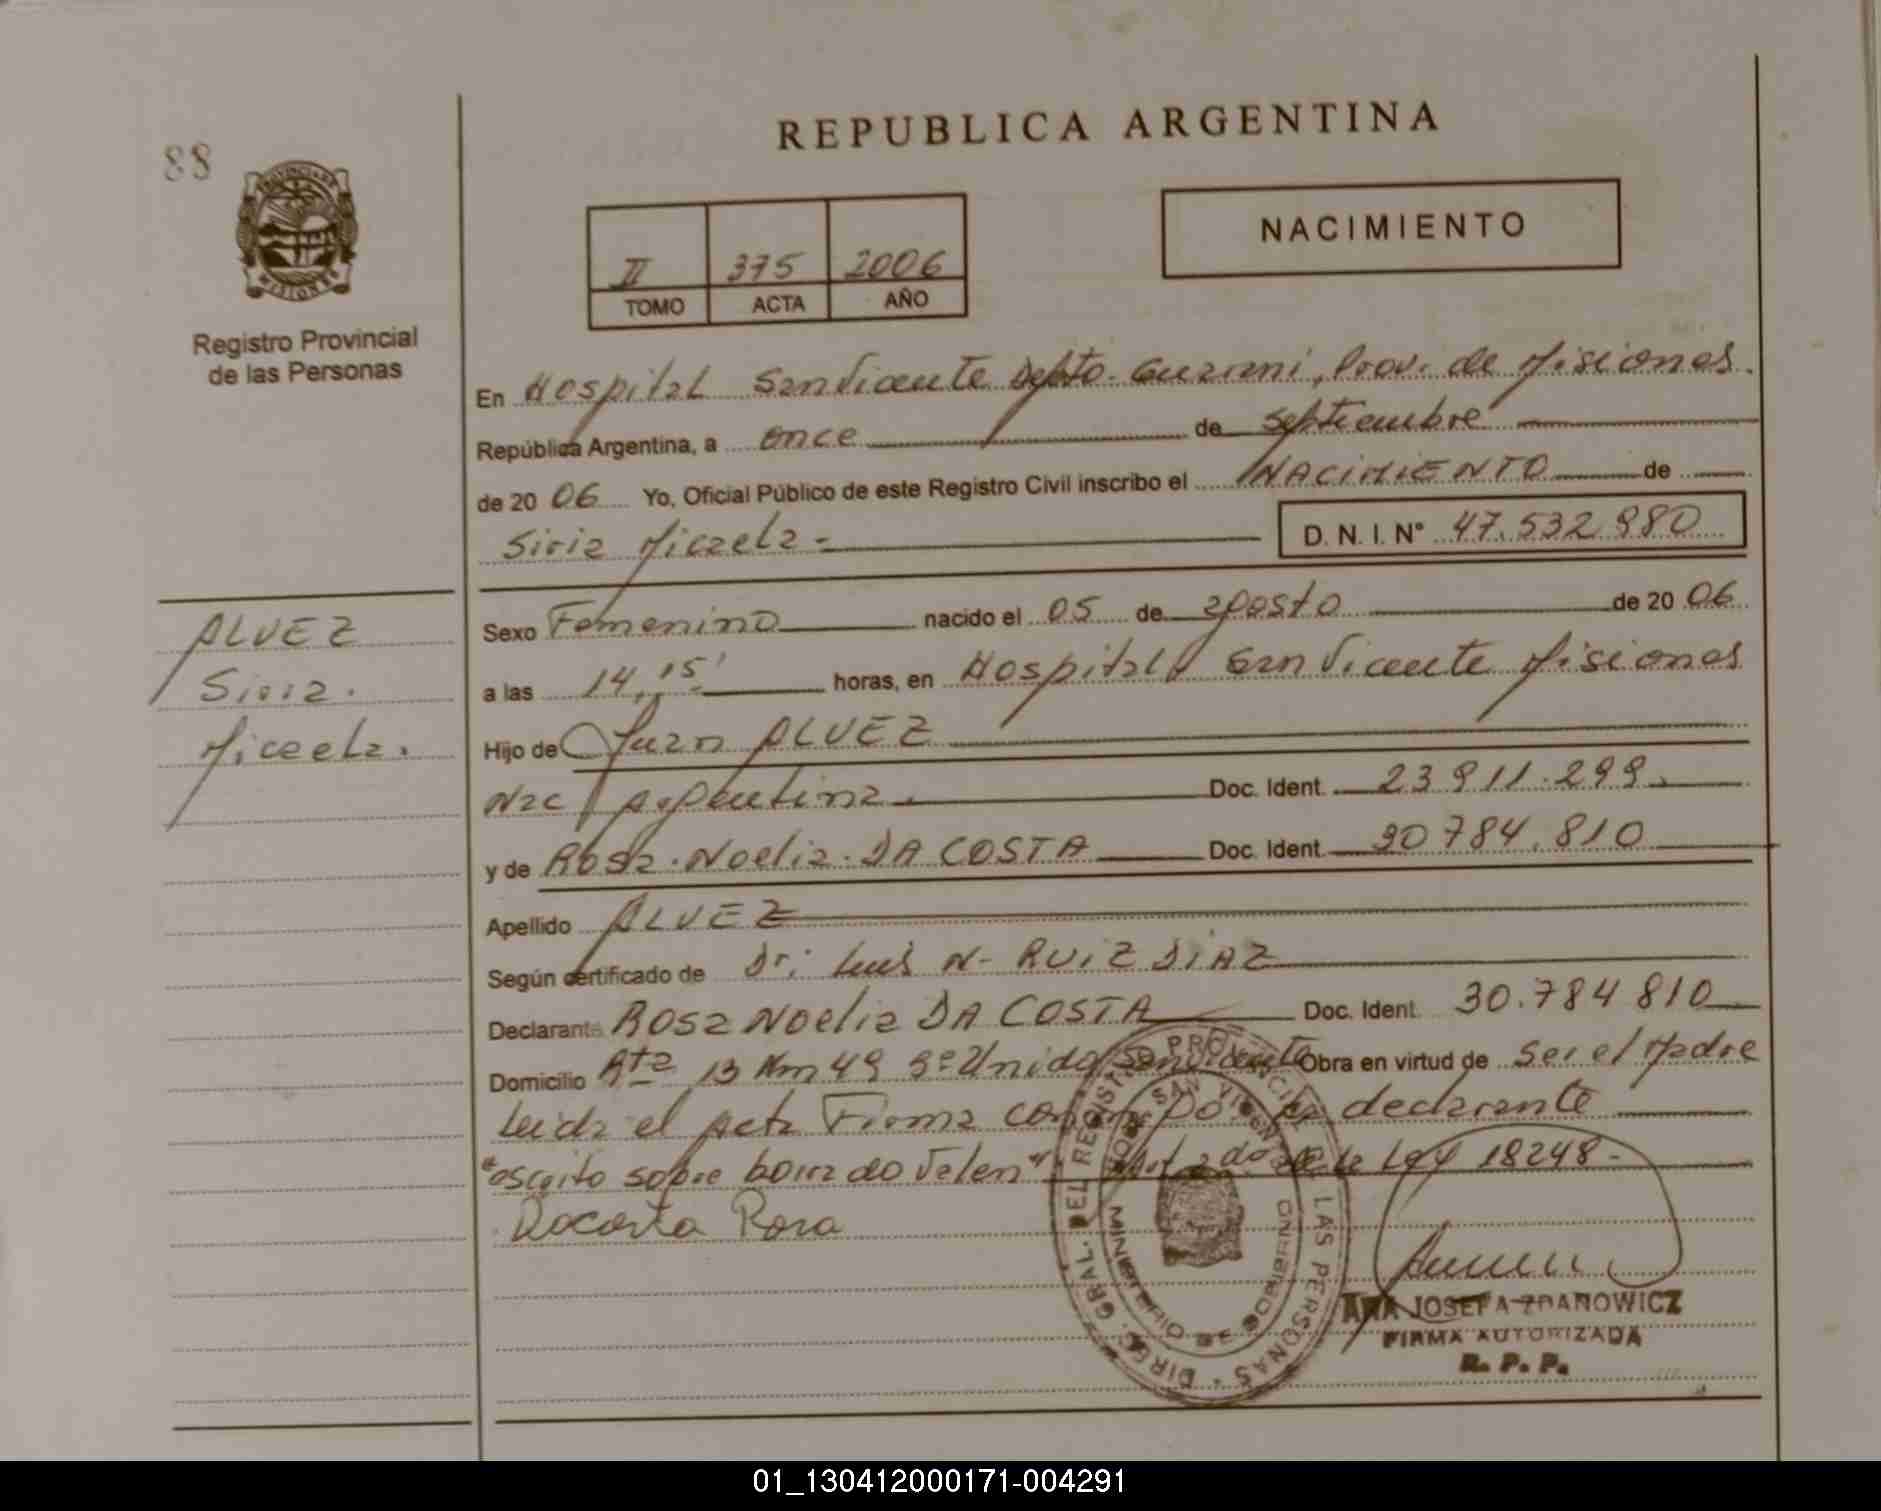 88
REPUBLICA ARGENTINA
NACIMIENTO
II 375 2006
TOMO ACTA AÑO
Registro Provincial
de las Personas
En Hospital San Vicente Depto. Guarani, Prov. de Misiones.
República Argentina, a once de septiembre
de 2006 Yo, Oficial Público de este Registro Civil inscribo el NACIMIENTO de
Siria Micaela.- D. N. I. N° 47.532 980
ALVEZ
Siria.
Micaela.
Sexo Femenino nacido el 05 de agosto de 2006
a las 14,15' horas, en Hospital San Vicente Misiones
Hijo de Juan ALVEZ
Nac Argentina. Doc. Ident. 23 911.299.
y de Rosa Noelia DA COSTA Doc. Ident. 30 784.810
Apellido ALVEZ
Según certificado de Dr. Luis N- RUIZ DIAZ
Declarante Rosa Noelia DA COSTA Doc. Ident. 30.784 810
Domicilio Rta 13 Km 49 San Vicente Obra en virtud de ser el Madre
Leida el acta Firma declarante
"escrito sobre borrado Valen" de la Ley 18248-
Dacosta Rosa
DIREC. GRAL. DEL REGISTRO PROVINCIAL DE LAS PERSONAS
SAN VICENTE
MINISTERIO DE GOBIERNO
ANA JOSEFA ZDANOWICZ
FIRMA AUTORIZADA
R. P. P.
01_130412000171-004291